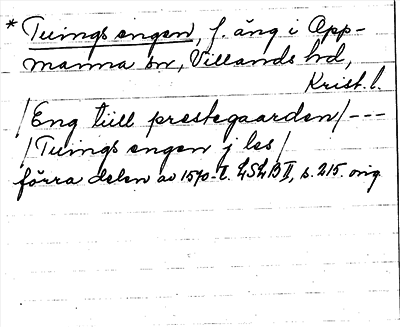 * Tuings engen, f. äng i Opp-
manna sn, Villands hd,
Krist. l.
/Eng tiill prestegaarden/---
/Tuings engen j les/
förra delen av 1570-t. LSLB II, s. 215. orig